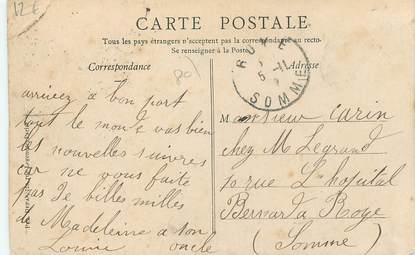 12€
CARTE POSTALE
Tous les pays étrangers n'acceptent pas la correspondance au recto.
Se renseigner à la Poste
Correspondance
Adresse
ROYE
5-11
SOMME
arrivez a bon port
tout le monde vas bien
les nouvelles suivres
car ne vous faite
pas de billes milles
de Madeleine a son
Louise oncle
Monsieur Carin
chez M Legrand
10 rue L'hopital
Bernard a Roye
(Somme)